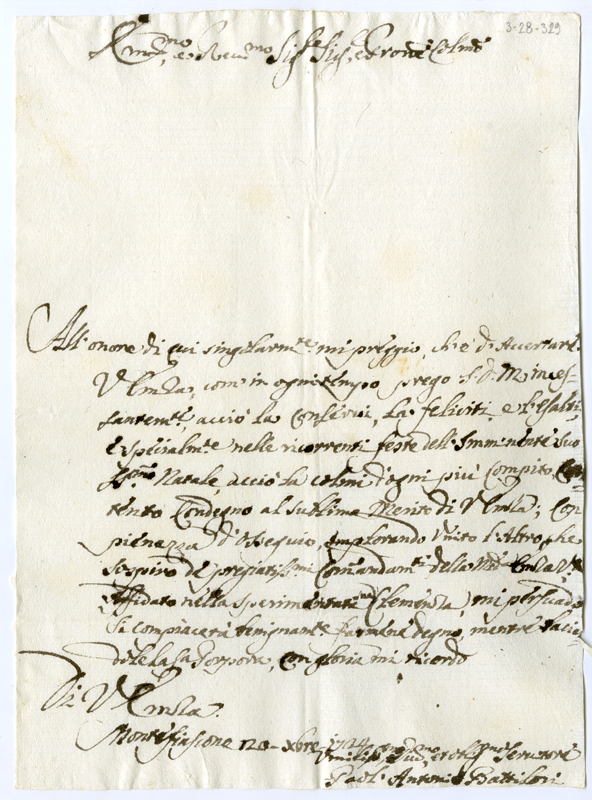 3-28-329
Em.mo, e Rev.mo Sig.r Sig.r, e Padrone Colmo
All'onore di cui singolarm.te mi preggio, ch'è d'Accertare
V. Emza, com'in ogni tempo prego S. D. M. inces-
santem.te, acciò la Conservi, La feliciti, e l'esalti,
e spezialm.te nelle ricorrenti feste dell'Imminente suo
SS.mo Natale, acciò la colmi d'ogni più Compito, Con-
tento Condegno al sublime Merito di V. Emza; Con
pienezza d'Ossequio, implorando Unito l'Altro, che
sospiro de pregiatiss.mi Comandam.ti della
Affidato nella sperimentatis.ma Clemenza, mi persuado
si compiacerà benignam.te farmene degno, mentre
della sa. Porpora, con gloria mi ricordo
Di V. Emza.
Montefiascone 20 Xbre 1724
Umiliss.mo e oblig.mo Servitore
Paol'Antonio Battilori